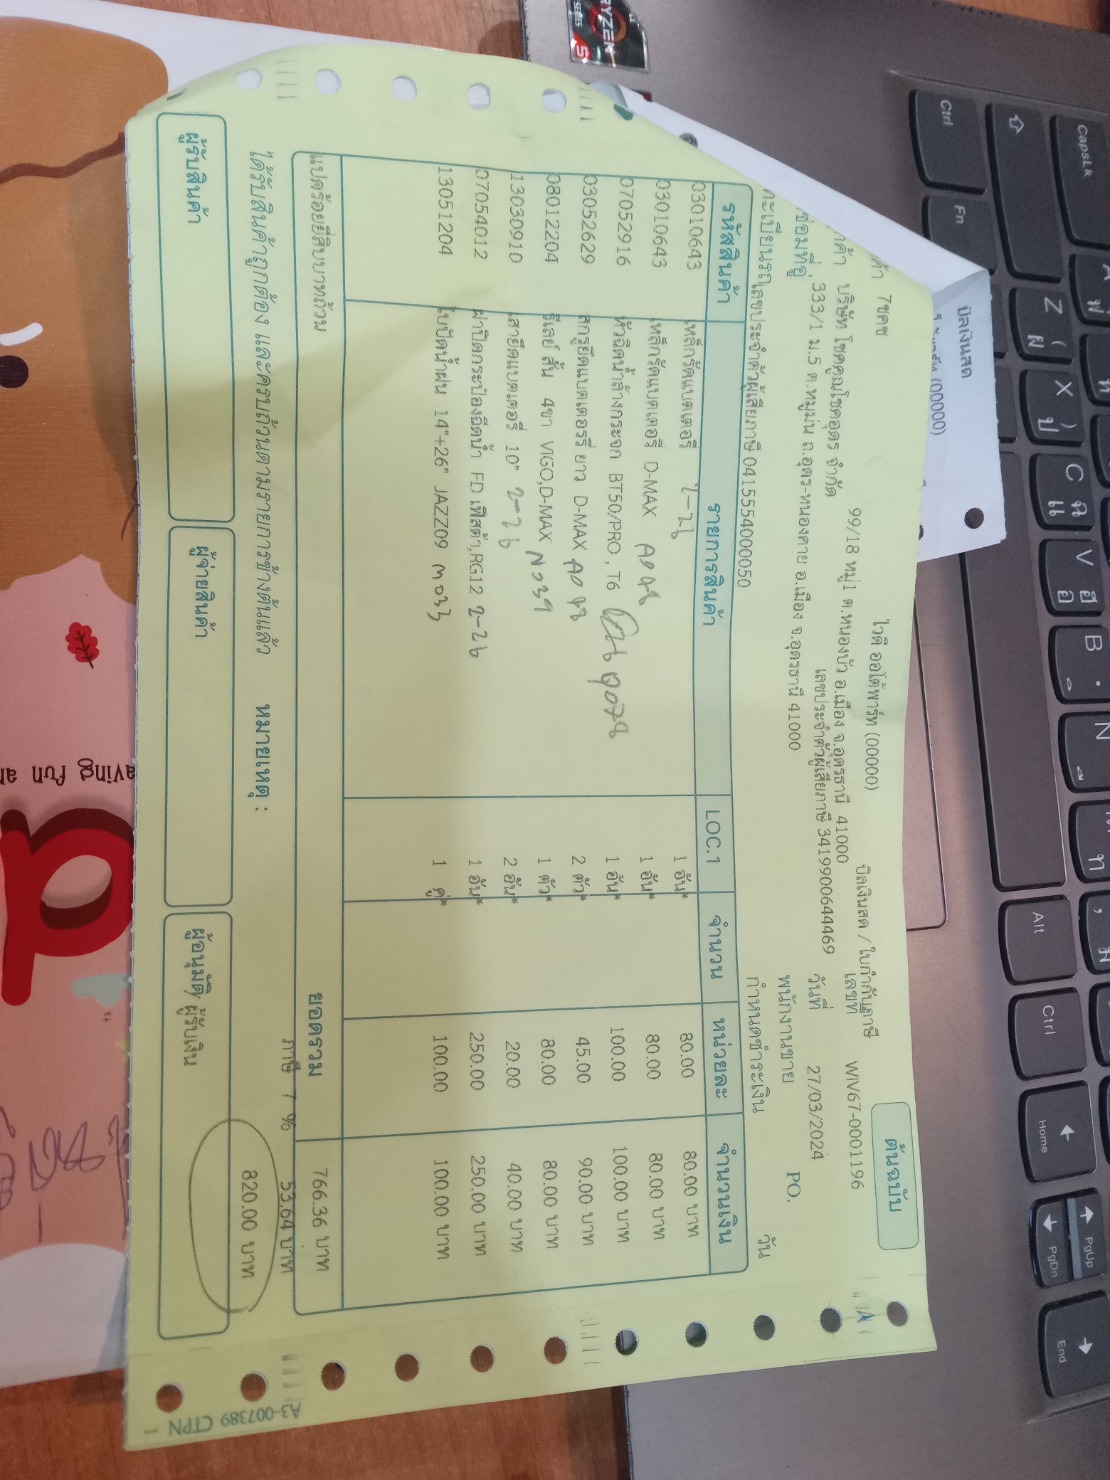 ต้นฉบับ
ไวดี ออโต้พาร์ท (00000)
บิลเงินสด / ใบกำกับภาษี
99/18 หมู่1 ต.หนองบัว อ.เมือง จ.อุดรธานี 41000
เลขประจำตัวผู้เสียภาษี 3419900644469
เลขที่ WIV67-0001196
วันที่ 27/03/2024
7ชคช
บริษัท โชคคูณโชคอุดร จำกัด
333/1 ม.5 ต.หมูม่น ถ.อุดร-หนองคาย อ.เมือง จ.อุดรธานี 41000
พนักงานขาย PO.
เลขประจำตัวผู้เสียภาษี 0415554000050
กำหนดชำระเงิน วัน
รหัสสินค้า รายการสินค้า LOC.1 จำนวน หน่วยละ จำนวนเงิน
03010643 เหล็กรัดแบตเตอรี่ 2-26 1 อัน* 80.00 80.00 บาท
03010643 เหล็กรัดแบตเตอรี่ D-MAX 1 อัน* 80.00 80.00 บาท
07052916 หัวฉีดน้ำล้างกระจก BT50/PRO , T6 1 อัน* 100.00 100.00 บาท
03052629 สกรูยึดแบตเตอรรี่ ยาว D-MAX 2 ตัว* 45.00 90.00 บาท
08012204 รีเลย์ สั้น 4ขา VIGO,D-MAX 1 ตัว* 80.00 80.00 บาท
13030910 สายยึดแบตเตอรี่ 10" 2-26 2 อัน* 20.00 40.00 บาท
07054012 ฝาปิดกระป๋องฉีดน้ำ FD เฟิสต้า,RG12 2-26 1 อัน* 250.00 250.00 บาท
13051204 ใบปัดน้ำฝน 14"+26" JAZZ09 1 คู่* 100.00 100.00 บาท
แปดร้อยยี่สิบบาทถ้วน ยอดรวม 766.36 บาท
ภาษี 7 % 53.64 บาท
ได้รับสินค้าถูกต้อง และครบถ้วนตามรายการข้างต้นแล้ว หมายเหตุ :
820.00 บาท
ผู้รับสินค้า ผู้จ่ายสินค้า ผู้อนุมัติ/ ผู้รับเงิน
A3-007389 CTPN 1
บิลเงินสด
(00000)
RYZEN
5
CapsLk
Ctrl
Fn
Z
X
C
V
B
N
Alt
Ctrl
Home
PgUp
PgDn
End
aving fun an